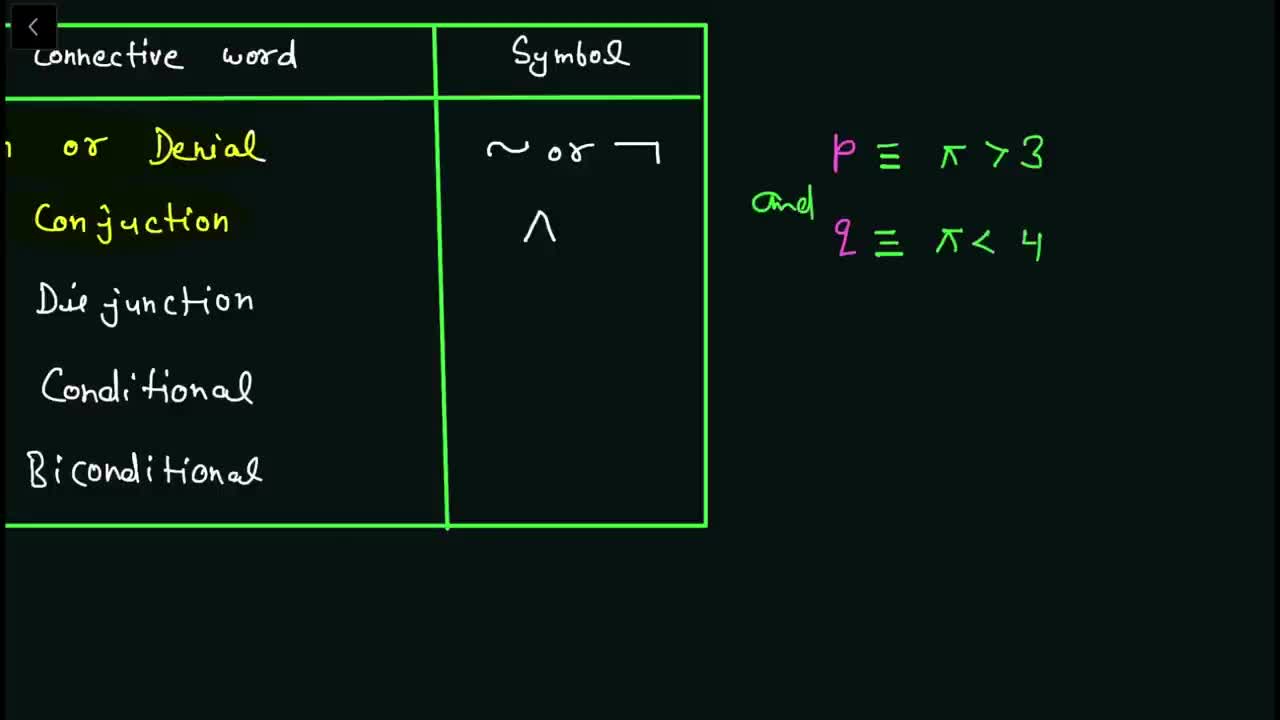 Connective word Symbol
n or Denial ~ or ¬
Conjuction ∧
Disjunction
Conditional
Biconditional
p ≡ π > 3
and
q ≡ π < 4